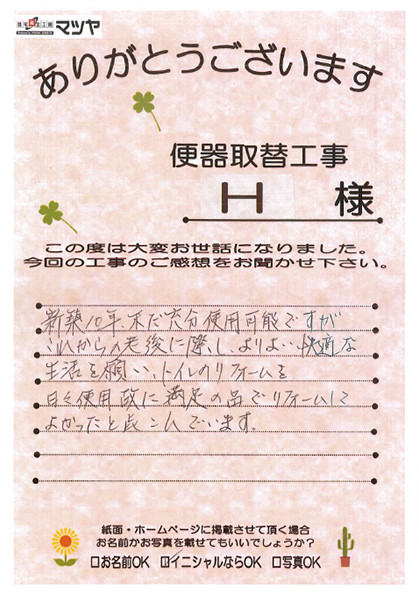 マツヤ
ありがとうございます
便器取替工事
H 様
この度は大変お世話になりました。
今回の工事のご感想をお聞かせ下さい。
新築10年、未だ充分使用可能ですが
これからの老後に際し、よりよい快適な
生活を願い、トイレのリフォームを
日々使用故に満足の品でリフォームして
よかったと感じています。
紙面・ホームページに掲載させて頂く場合
お名前かお写真を載せてもいいでしょうか?
☐お名前OK ☑イニシャルならOK ☐写真OK